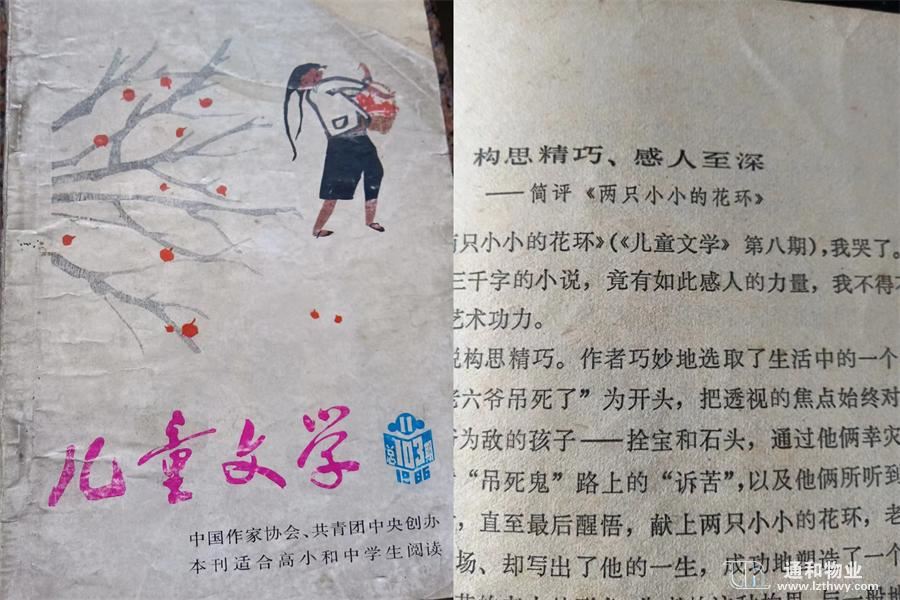 儿童文学
11
总103期
1986
中国作家协会、共青团中央创办
本刊适合高小和中学生阅读
构思精巧、感人至深
——简评《两只小小的花环》
两只小小的花环》(《儿童文学》第八期),我哭了。
三千字的小说，竟有如此感人的力量，我不得不
艺术功力。
说构思精巧。作者巧妙地选取了生活中的一个
老六爷吊死了”为开头，把透视的焦点始终对
为敌的孩子——拴宝和石头，通过他俩幸灾
“吊死鬼”路上的“诉苦”，以及他俩所听到
，直至最后醒悟，献上两只小小的花环，老
场、却写出了他的一生，成功地塑造了一个
通和物业
www.lzthwy.com